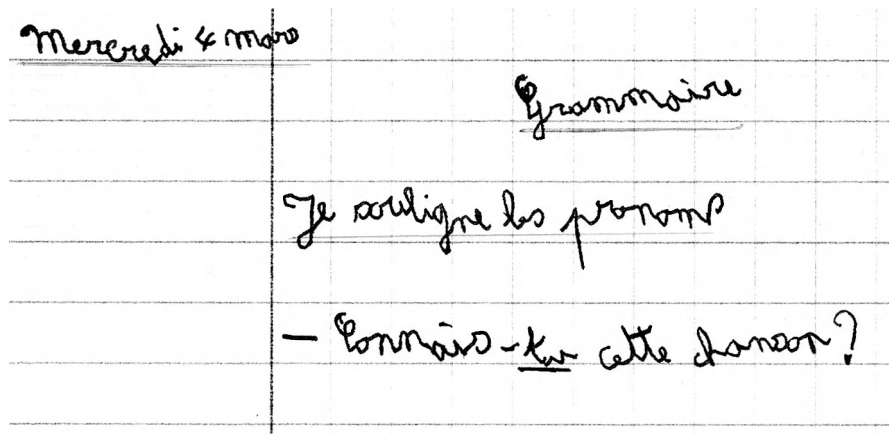 Mercredi 4 mars
Grammaire
Je souligne les pronoms
- Connais-tu cette chanson?